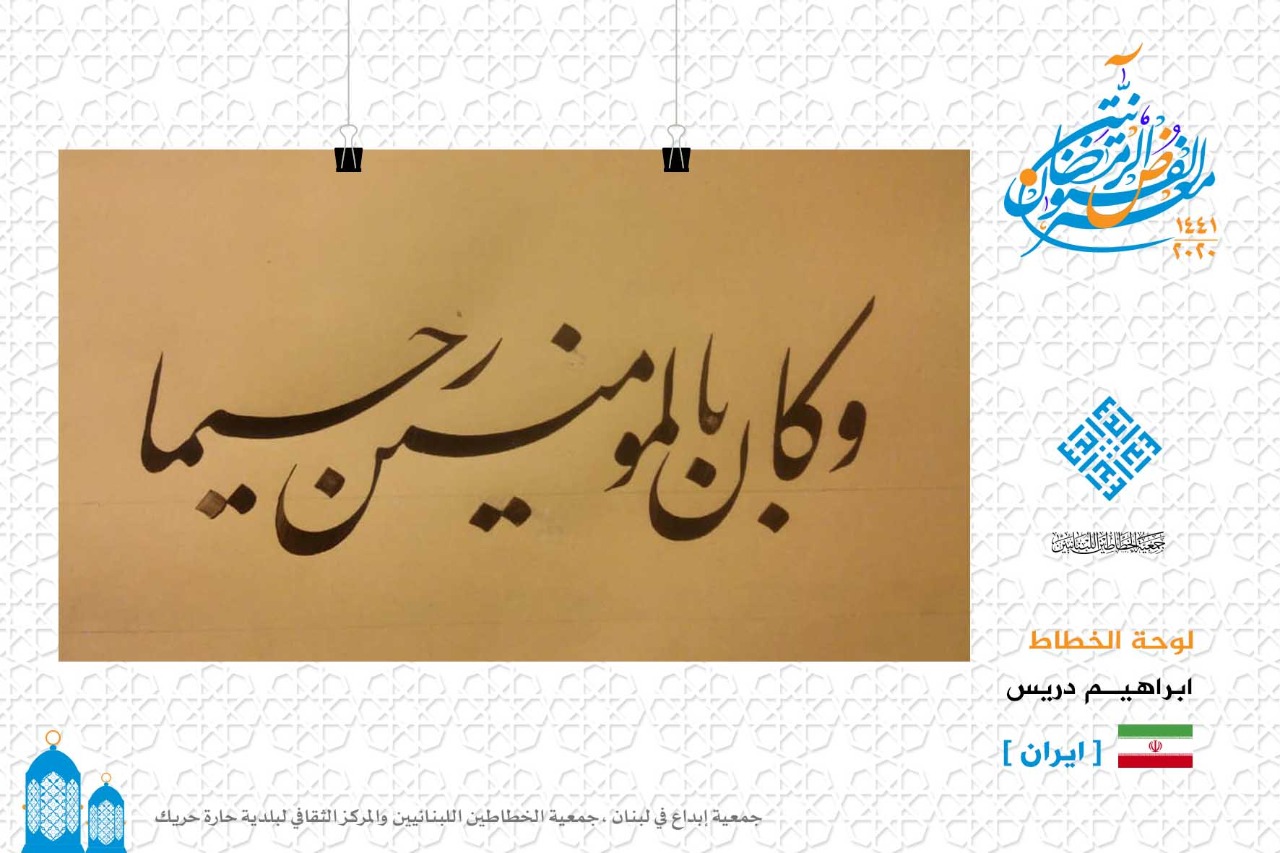 معرض الفنون الرمضانية
١٤٤١
٢٠٢٠
وكان بالمومنين رحيما
جمعية الخطاطين اللبنانيين
لوحة الخطاط
ابراهيم دريس
[ ايران ]
جمعية إبداع في لبنان ، جمعية الخطاطين اللبنانيين والمركز الثقافي لبلدية حارة حريك